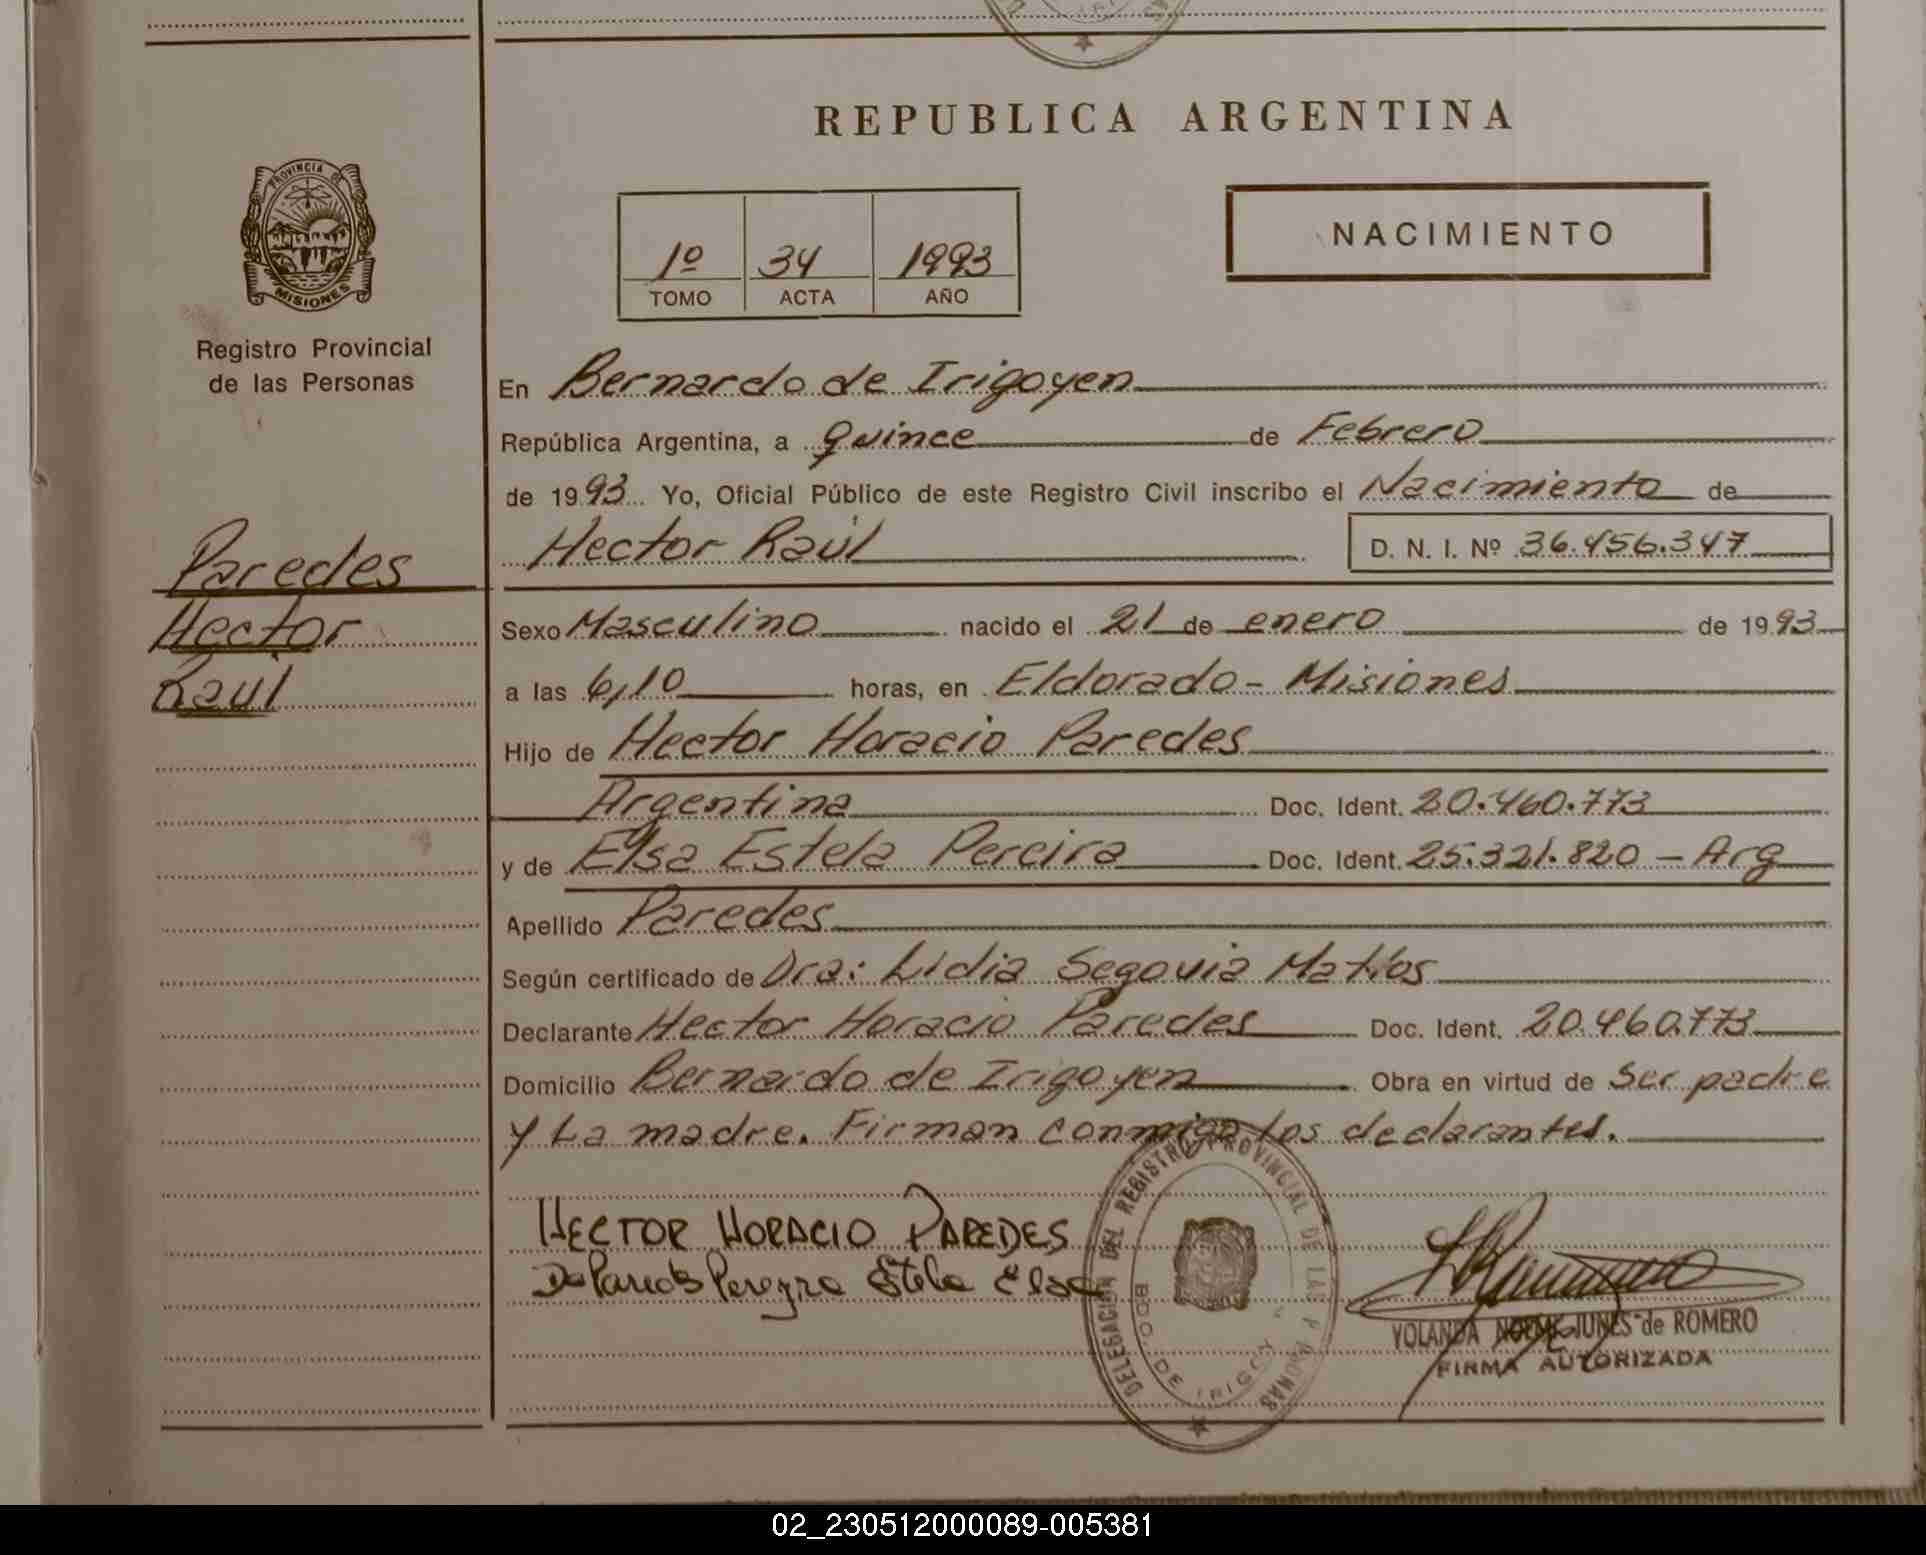 REPUBLICA ARGENTINA
PROVINCIA DE
MISIONES
Registro Provincial
de las Personas
1º 34 1993
TOMO ACTA AÑO
NACIMIENTO
En Bernardo de Irigoyen
República Argentina, a quince de Febrero
de 1993 Yo, Oficial Público de este Registro Civil inscribo el Nacimiento de
Hector Raúl D. N. I. Nº 36.456.347
Paredes
Hector
Raúl
Sexo Masculino nacido el 21 de enero de 1993
a las 6,10 horas, en Eldorado - Misiones
Hijo de Hector Horacio Paredes
Argentina Doc. Ident. 20.460.773
y de Elsa Estela Pereira Doc. Ident. 25.321.820 - Arg
Apellido Paredes
Según certificado de Dra: Lidia Segovia Matíos
Declarante Hector Horacio Paredes Doc. Ident. 20.460.773
Domicilio Bernardo de Irigoyen Obra en virtud de ser padre
y La madre. Firman conmigo los declarantes.
HECTOR HORACIO PAREDES
De Paredes Pereyra Estela Elsa
DELEGACION DEL REGISTRO PROVINCIAL DE LAS PERSONAS
BDO. DE IRIGOYEN
YOLANDA NOEMI JUNES de ROMERO
FIRMA AUTORIZADA
02_230512000089-005381